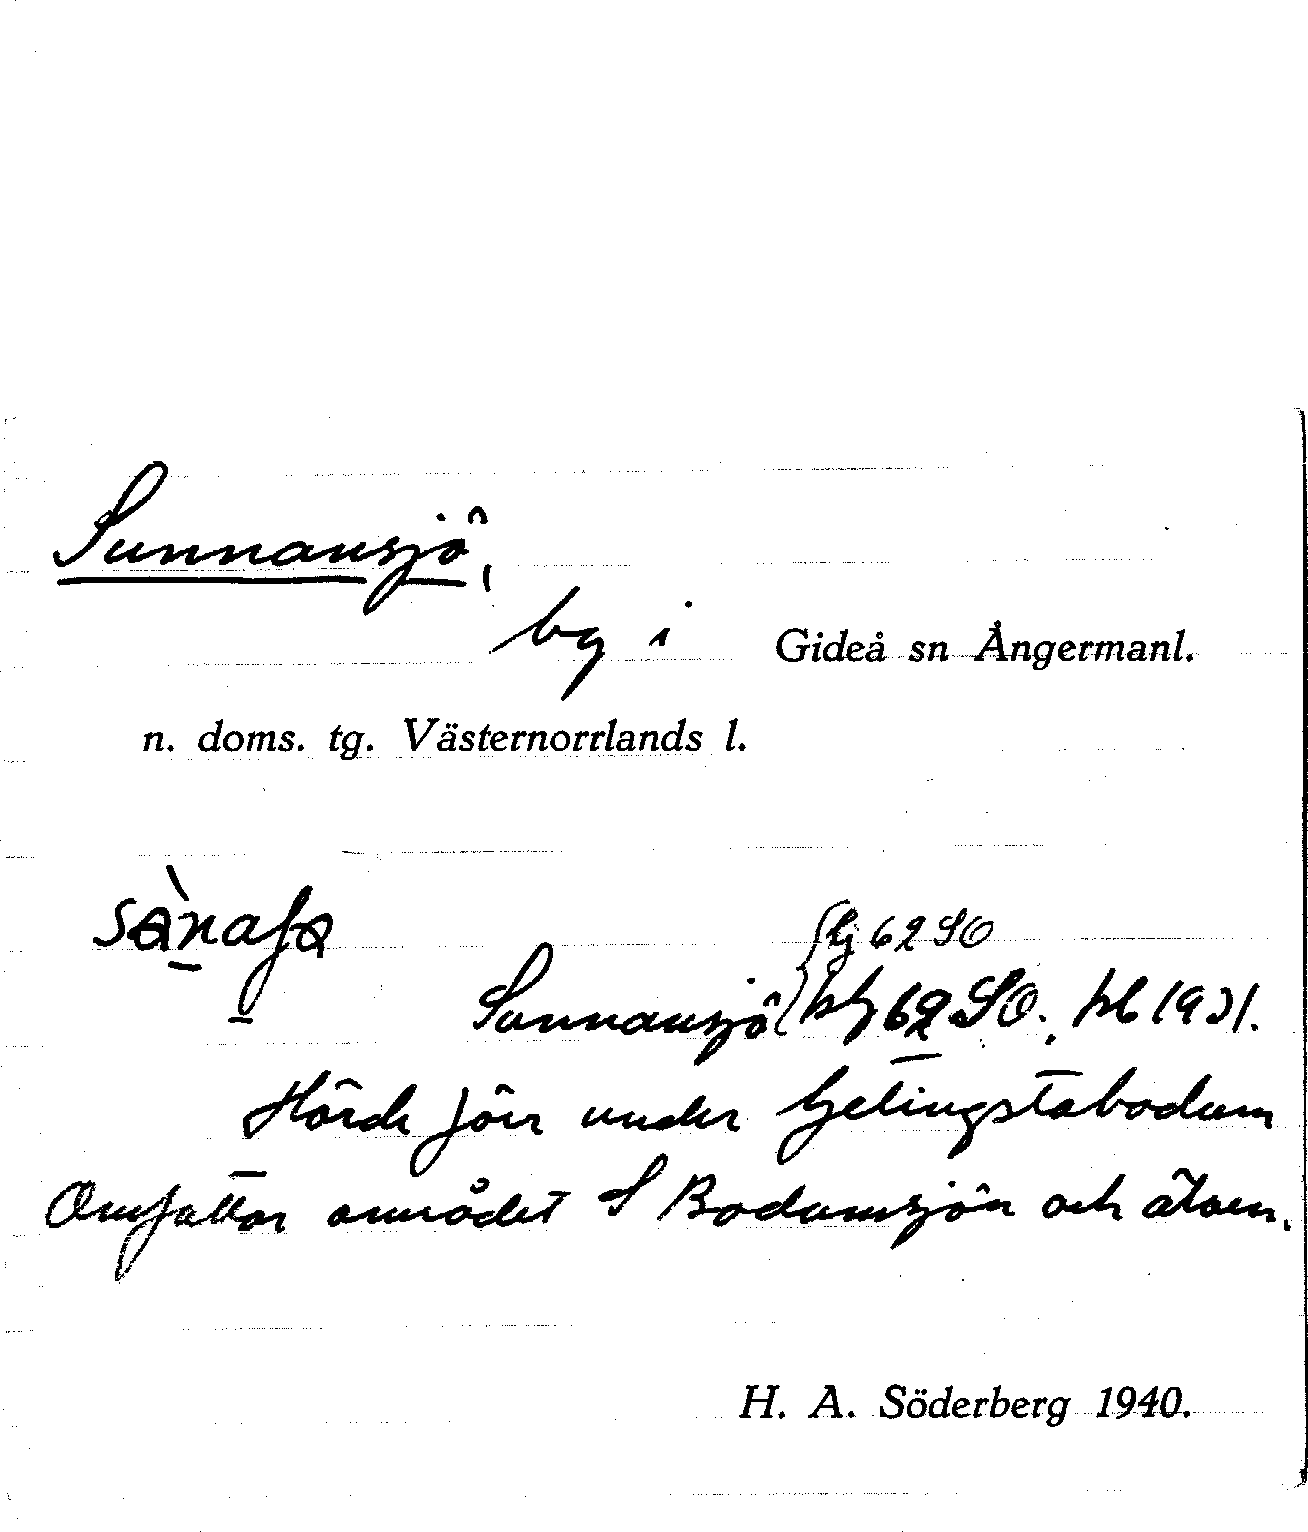 Sunnansjö,
by i Gideå sn Ångermanl.
n. doms. tg. Västernorrlands l.
62 SO
Sunnansjö 62 SO. jrb 1931.
Hörde förr under Gelingstabodum
Omfattar området S Bodumsjön och älven.
H. A. Söderberg 1940.